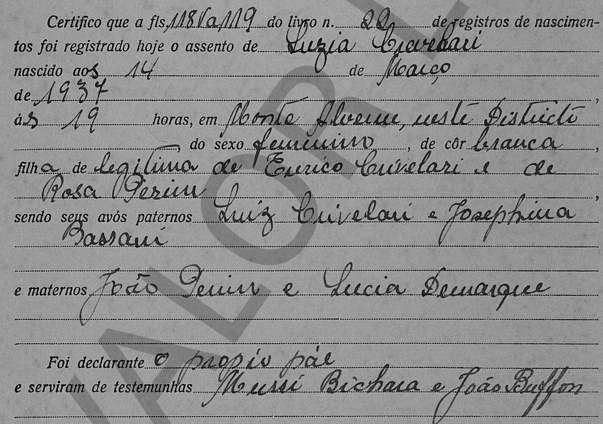 Certifico que a fls. 118V a 119 do livro n. 22 de registros de nascimen-
tos foi registrado hoje o assento de Luzia Crivelari
nascido aos 14 de Março
de 1937 ,
ás 19 horas, em Monte Alverne, neste Districto
do sexo feminino , de côr branca ,
filha de legitima de Eurico Crivelari e de
Rosa Perim ,
sendo seus avós paternos Luiz Crivelari e Josephina
Bassani
e maternos João Perim e Lucia Demarque
Foi declarante o propio páe
e serviram de testemunhas Mussi Bichara e João Buffon
VALOR